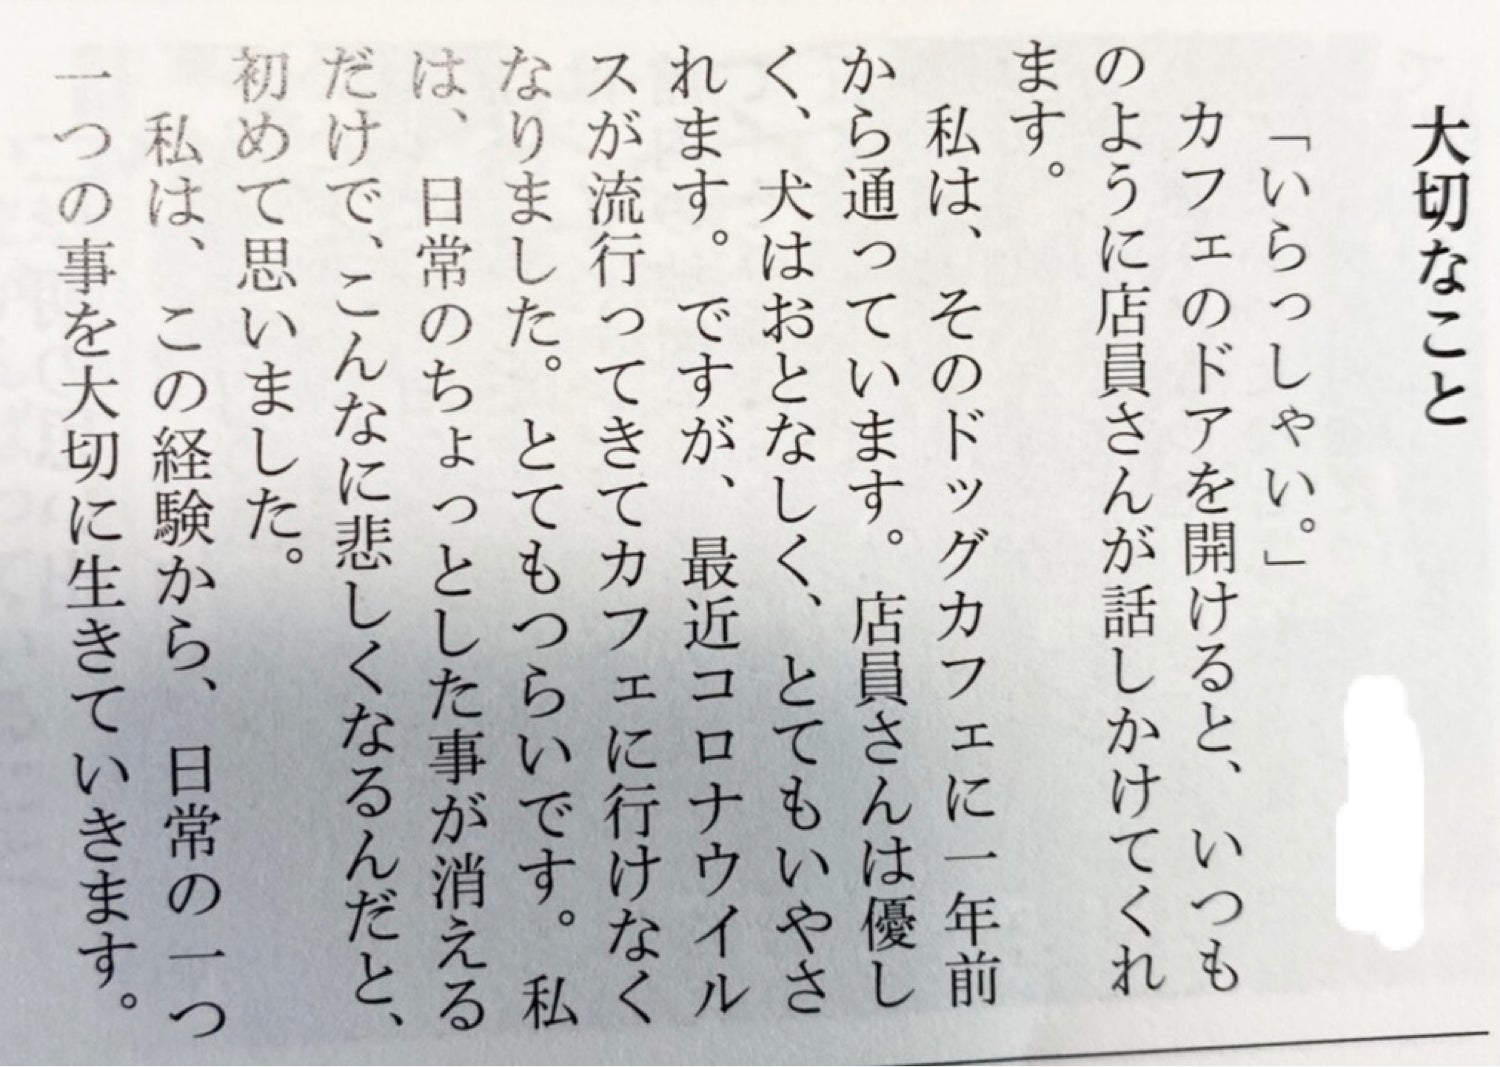 大切なこと
「いらっしゃい。」
カフェのドアを開けると、いつも
のように店員さんが話しかけてくれ
ます。
私は、そのドッグカフェに一年前
から通っています。店員さんは優し
く、犬はおとなしく、とてもいやさ
れます。ですが、最近コロナウイル
スが流行ってきてカフェに行けなく
なりました。とてもつらいです。私
は、日常のちょっとした事が消える
だけで、こんなに悲しくなるんだと、
初めて思いました。
私は、この経験から、日常の一つ
一つの事を大切に生きていきます。